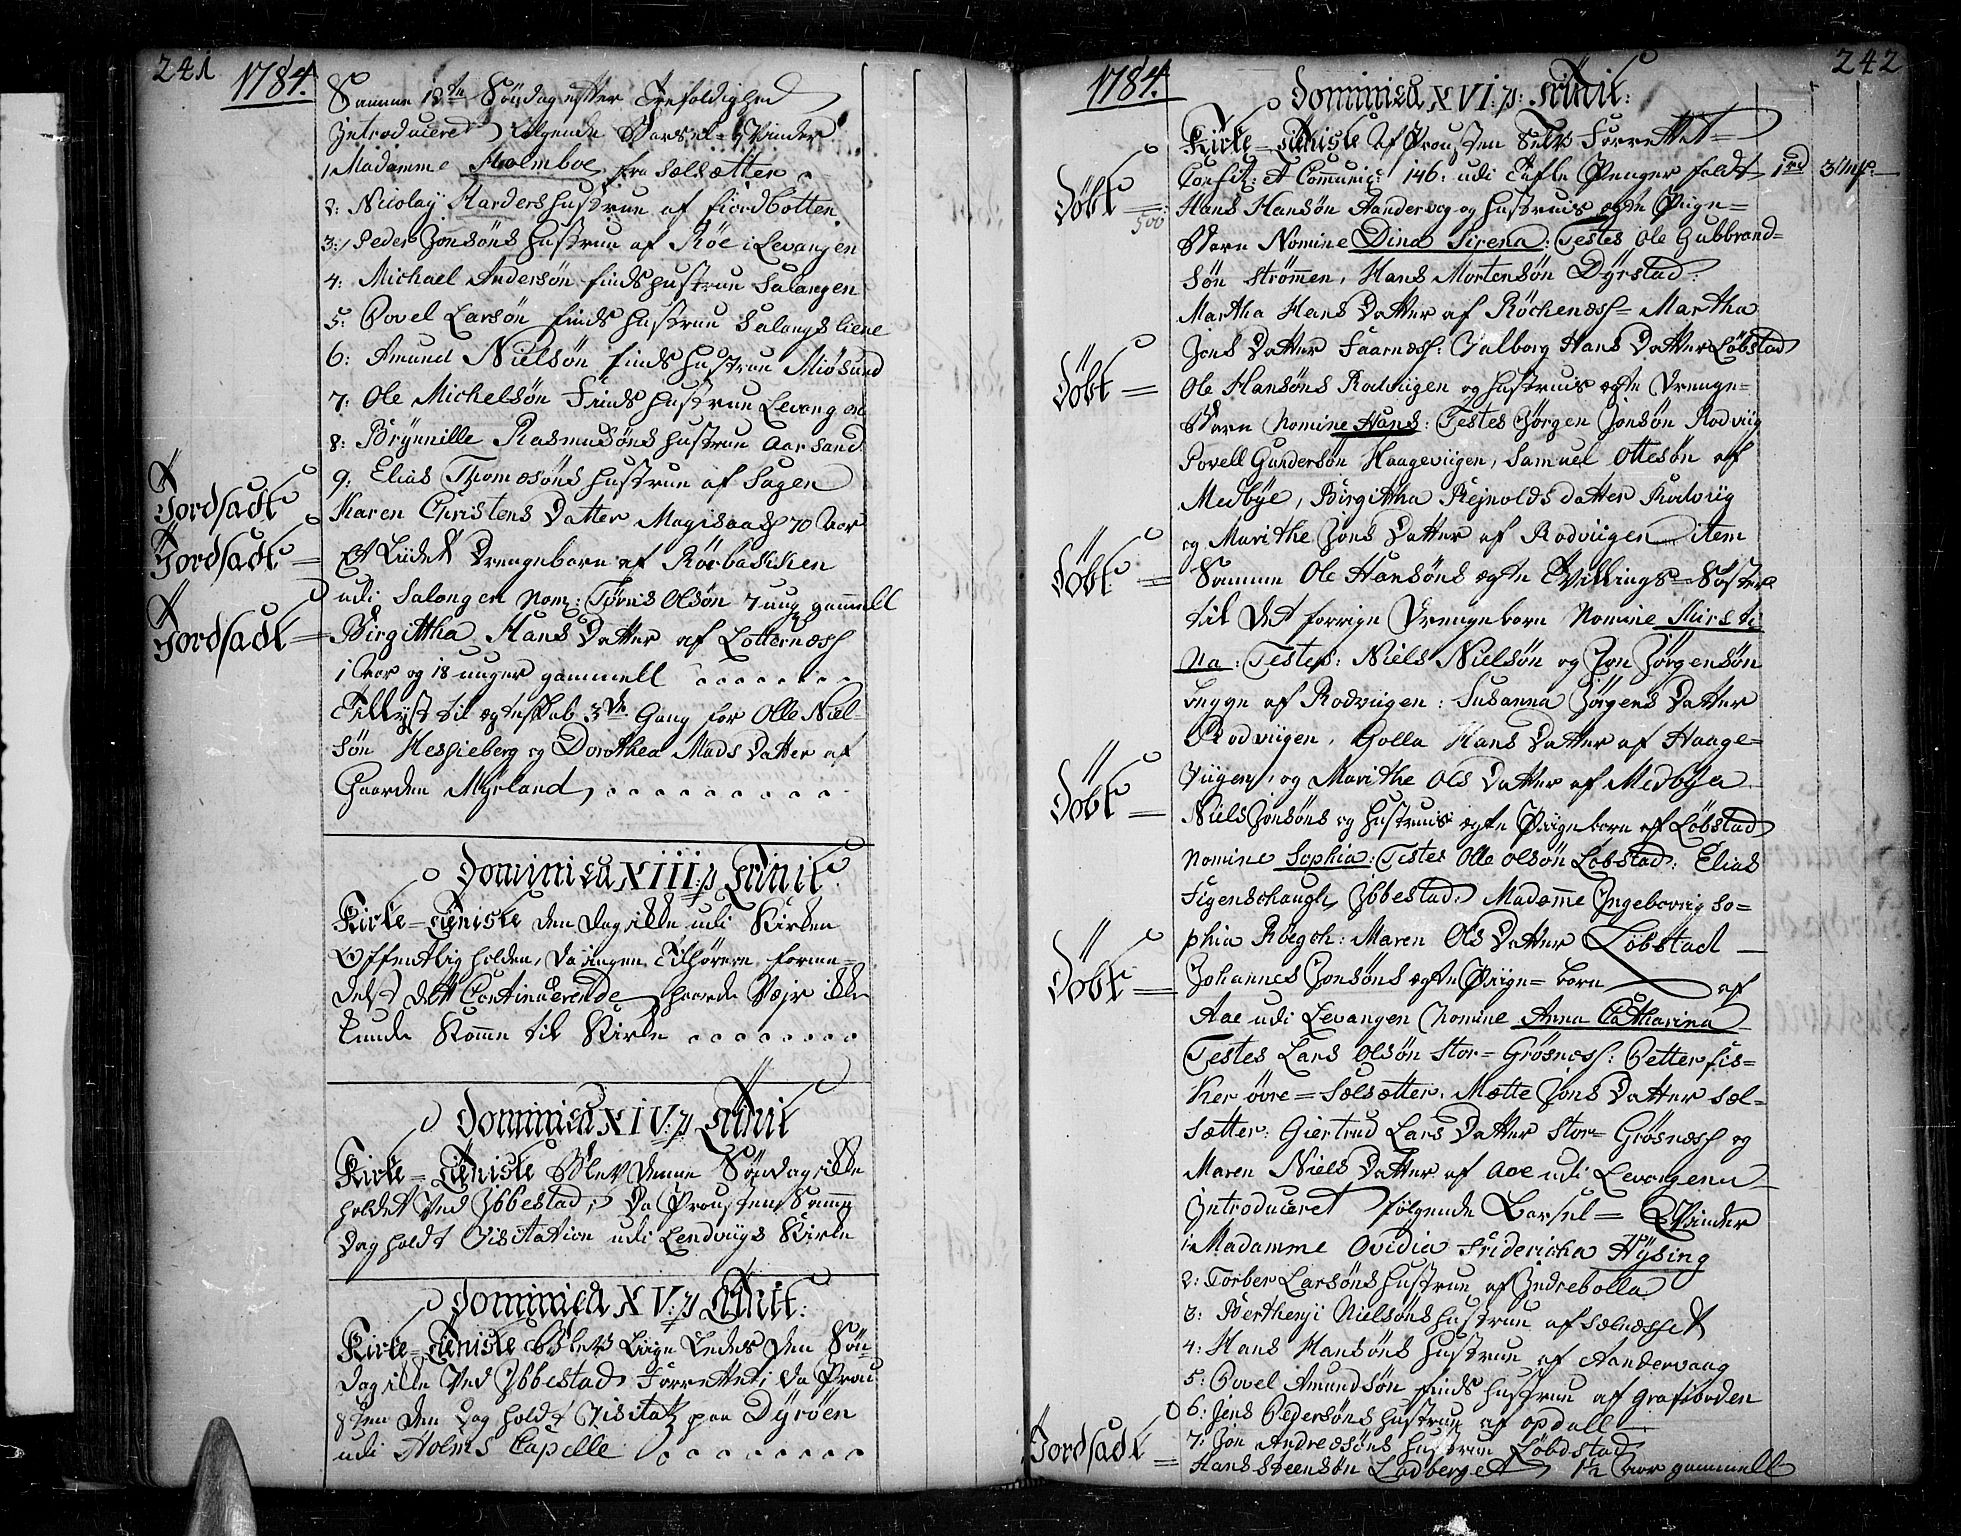 241
1784.
Samme 12te Søndag efter Trefoldighed
Introduceret følgende Barsel-Qvinder
1 Madamme Holmboe fra Sælsætter
2: Nicolay Harders Hustrue af Fiordbotten
3: Peder Jonsøns Hustrue af Røe i Levangen
4: Michael Andersøn Finds Hustrue Salangen
5: Povel Larsøn Finds Hustrue Salangs liene
6: Amund Nielsøn Finds Hustrue Miøsund
7: Ole Michelsøn Finds Hustrue Levangen
8: Brynnille Rasmusøns Hustrue Aarsand
9: Elias Thomæsøns Hustrue af Sagen
Jordsadt
Karen Christens Datter 70 Aar
Jordsadt =
Et Liidet Drengebarn af Rørbakken
udi Salangen Nom: Tørris Olsøn 7 uug gammell
Jordsadt =
Birgittha Hans Datter af Lotternæss
1 Aar og 18 uuger gammell
Tillyst til Ægteskab 3de Gang for Olle Niel-
søn Hessieberg og Dorothea Mads Datter af
Gaarden Myrland
Dominica XIII: p Trinit:
Kirke-Tieniste den Dag ikke udi Kirken
Offentlig holden, da ingen Tilhørere forme-
delst det Continuerende haarde Vejr ikke
kunde komme til Kirke
Dominica XIV: p Trinit
Kirke-Tieniste blev denne Søndag ikke
holdet ved Ibbestad, da Prousten samme
Dag holdt Visitation udi Lendviigs Kirke
Dominica XV: p Trinit:
Kirke-Tieniste blev Liige Ledes den Søn-
dag ikke ved Ibbestad Forrettet; da Prou-
sten den Dag holdt Visitatz paa Dyrøen
udi Holms Capelle
242
1784.
Dominica XVI: p: Trinit:
Kirke-Tieniste af Prousten Selv Forrettet
Confit: et Communic: 146: udi Tafle Penger faldt 1 rd 3
Døbt =
500
Hans Hansøn Aandervog og Hustruis ægte Piige-
Barn Nomine Dina Sirena: Testes Ole Gubbrand-
søn Strømmen, Hans Mortensøn Dyrstad:
Martha Hans Datter af Røchenæss- Martha
Jons Datter Faarness: Valborg Hans Datter Løbstad
Døbt =
Ole Hansøns Rodviigen og Hustruis ægte Drenge-
Barn Nomine Hans: Testes Jørgen Jonsøn Rodviig
Povell Gundersøn Haageviigen, Samuel Ottesøn af
Medbye, Birgitha Rejnolds datter Rodviig
og Marithe Jons Datter af Rodviigen item
Døbt =
Samme Ole Hansøns ægte Tvillings-Søster
til det forrige Drengebarn Nomine Kirsti-
na: Testes: Niels Nielsøn og Jon Jørgensøn
begge af Rodviigen: Susanna Jørgens Datter
Rodviigen, Golla Hans Datter af Haage-
viigen, og Marithe Ols Datter af Medbye
Døbt =
Niels Jonsøns og Hustruis ægte Piigebarn af Løbstad
Nomine Sophia: Testes Olle Olsøn Løbstad: Elias
Figenschaugh, Ibbestad: Madame Ingeborrig So-
phia Røegh: Maren Ols Datter Løbstad
Døbt =
Johannes Jonsøns ægte Piige-barn af
Aae udi Levangen Nomine Anna Catharina
Testes Lars Olsøn Stor-Grøsness: Petter Fis-
ker øvre-Sælsætter, Mætte Jons Datter Sæl-
sætter: Giertrud Lars Datter Stor-Grøsness og
Maren Niels Datter af Aae udi Levangenn
Introduceret følgende Barsel-Qvinder
1: Madamme Ovidia Fridericha Hysing
2: Torber Larsøns Hustrue af Indrebolla
3: Berthenji Nielsøns Hustrue af Sælnæsset
4: Hans Hansøns Hustrue af Aandervaag
5: Povel Amundsøn Finds Hustrue af
6: Jens Pedersøns Hustrue af Opdall
7: Jon Andreæsøns Hustrue Løbdstad
Jordsadt =
Hans Steensøn Ladberget 1½ Aar gammell